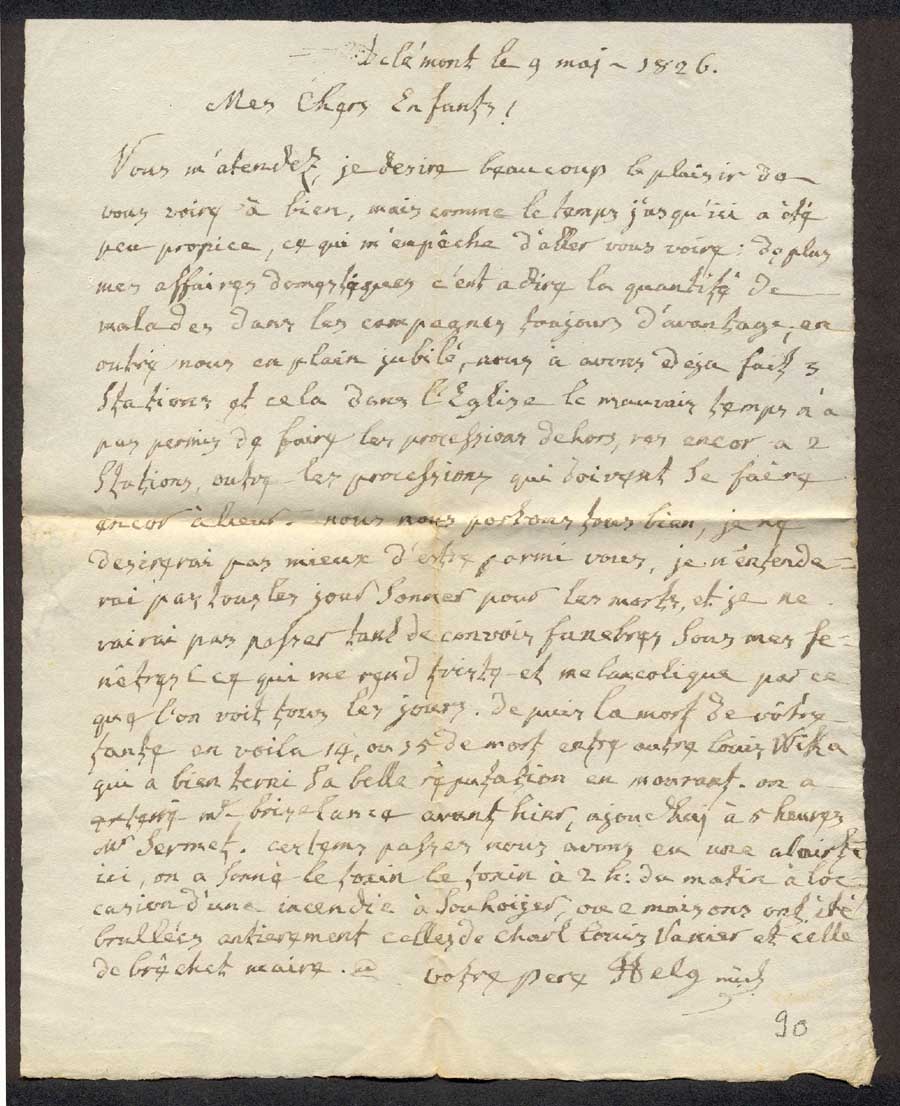 delémont le 9 maj - 1826.
Mes Chers Enfants!
Vous m'atendez, je desire beaucoup le plaisir de
vous voire à bien, mais comme le temps jusqu'ici a été
peu propice, ce qui m'empêche d'aller vous voire: de plus
mes affaires domestiques c'est a dire la quantité de
malades dans les campagnes toujours d'avantage, en
outre nous en plain jubilé, nous a avons deja fait 3
Stations et cela dans l'Eglise le mauvais temps n'a
pas permis de faire les processions dehors, encor a 2
Stations, outre les processions qui doivent se faire
encor nous nous portons tous bien, je ne
desirerai pas mieux d'estre parmi vous, je n'entende-
rai pas tous les jour sonner pour les morts, et je ne
vairai pas passer tant de convois funebres sous mes fe-
nêtres ce qui me rend triste et melancolique par ce
que l'on voit tous les jours. depuis la mort de vôtre
tante en voila 14, ou 15 de mort entre autre Louis Wika
qui a bien terni sa belle reputation en mourant. on a
enterré mr brizelance avant hier, ajourdhuj à 5 heures
Mr Sermet. ces tems passes nous avons eu une alairte
ici, on a sonné le toxin le toxin à 2 h: du matin à loc-
casion d'une incendie à Souhoijer, ou 2 maisons ont été
brullées antierement celles de Charl Louis Vanier et celle
de brêchet maire.
votre pere Helg
90